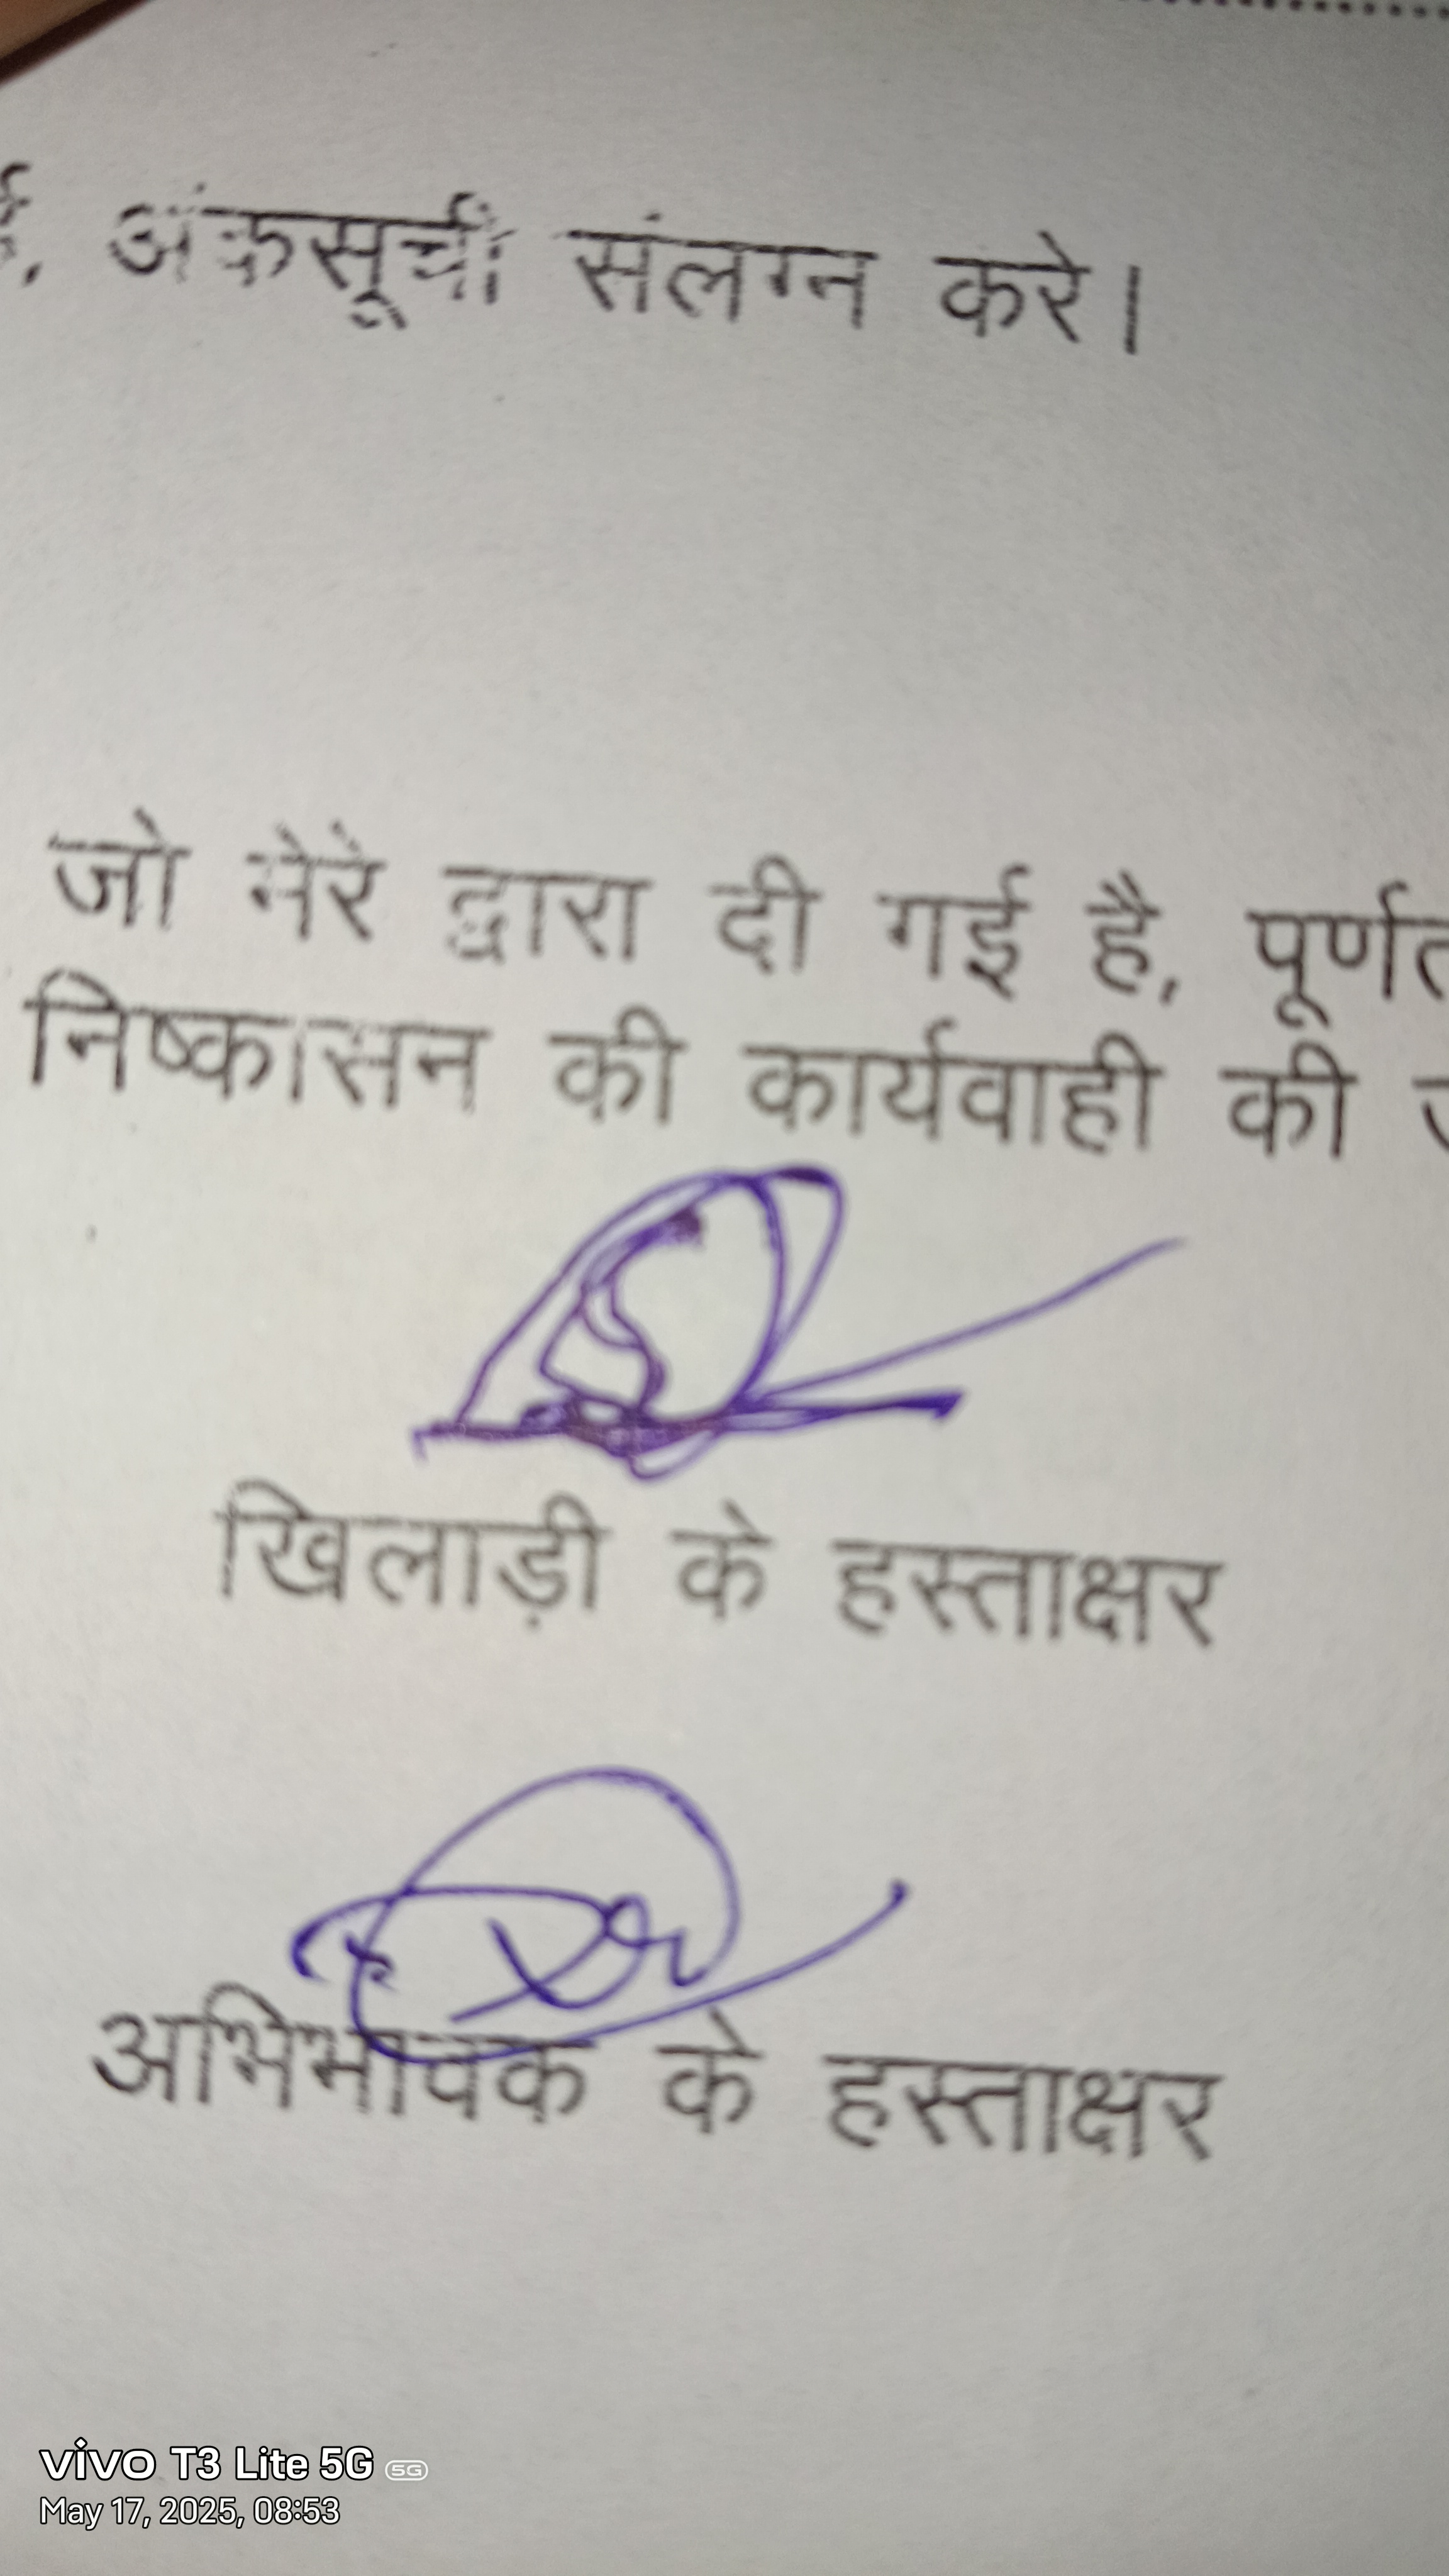 अंकसूची संलग्न करे।
जो मेरे द्वारा दी गई है, पूर्णत
निष्कासन की कार्यवाही की
खिलाड़ी के हस्ताक्षर
अभिभावक के हस्ताक्षर
vivo T3 Lite 5G 5G
May 17, 2025, 08:53